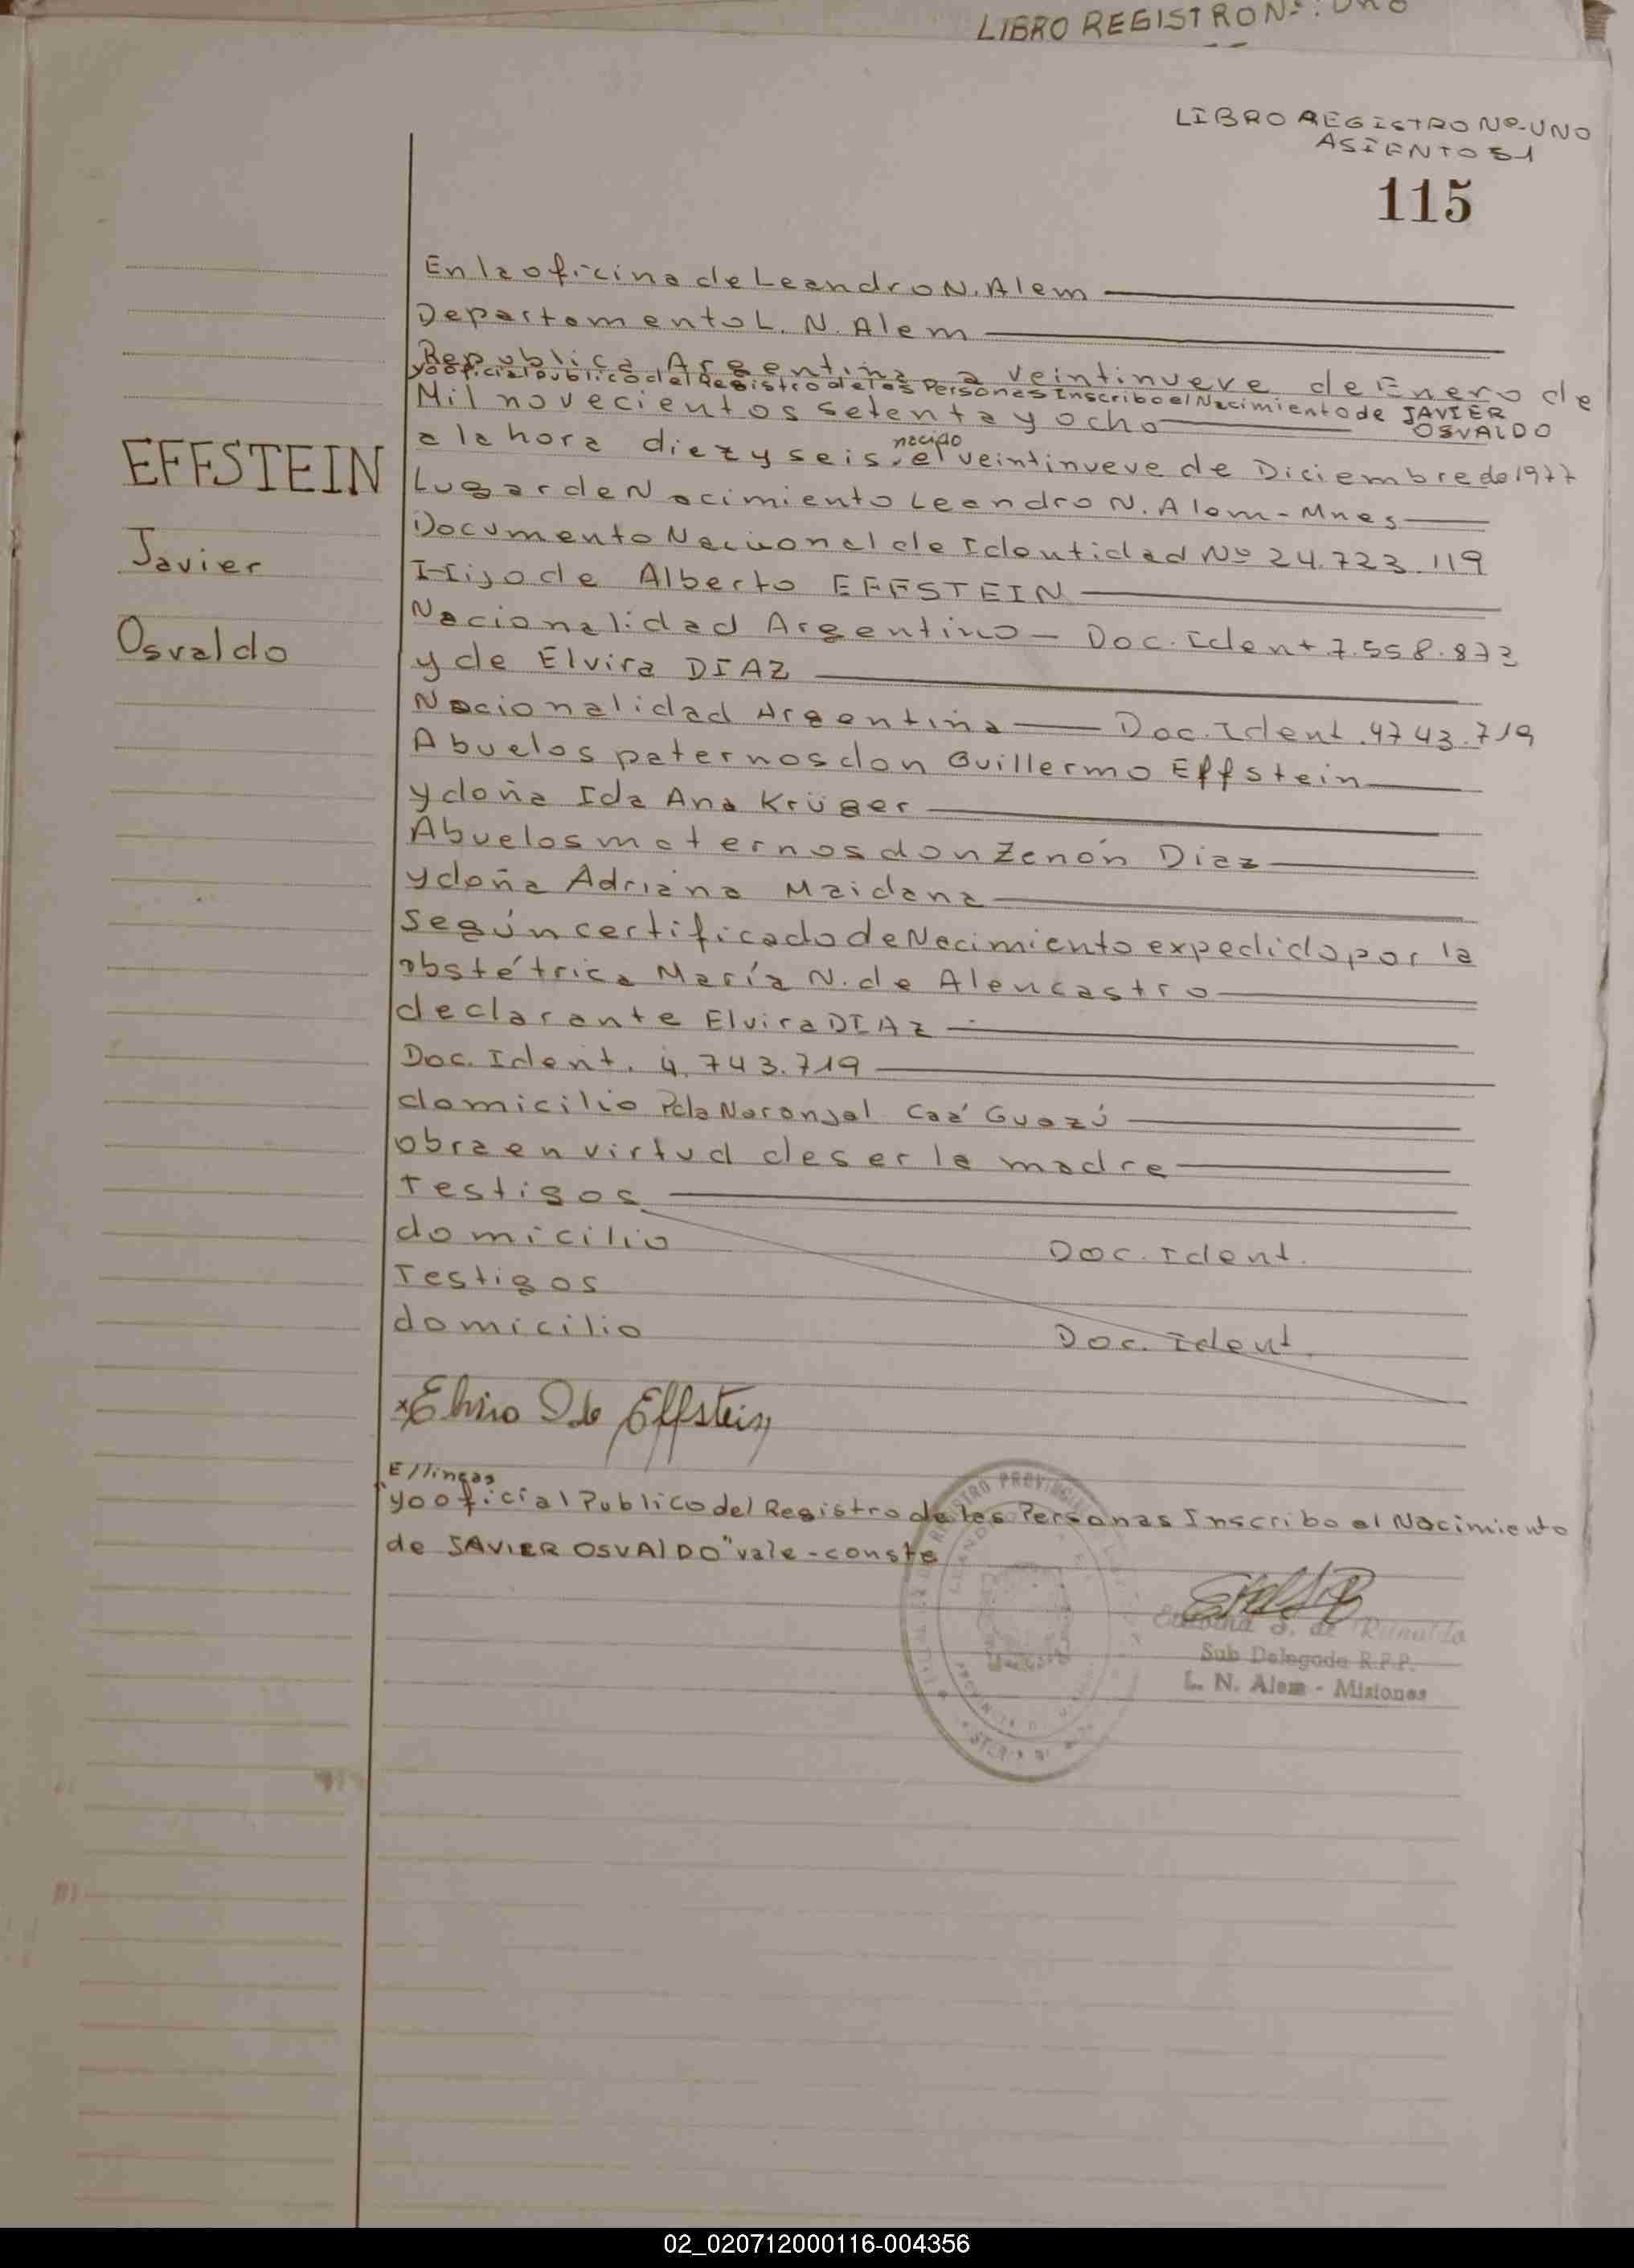 LIBRO REGISTRO Nº: UNO
LIBRO REGISTRO Nº-UNO
ASIENTO 51
115
En la oficina de Leandro N. Alem
Departamento L. N. Alem
República Argentina a veintinueve de Enero de
yo oficial Publico del Registro de las Personas Inscribo el Nacimiento de JAVIER OSVALDO
Mil novecientos setenta y ocho
a la hora diez y seis, el nacido veintinueve de Diciembre de 1977
EFFSTEIN
Lugar de Nacimiento Leandro N. Alem - Mnes
Documento Nacional de Identidad Nº 24.723.119
Javier
Hijo de Alberto EFFSTEIN
Nacionalidad Argentino - Doc. Ident 7.558.873
Osvaldo
y de Elvira DIAZ
Nacionalidad Argentina Doc. Ident. 4743.719
Abuelos paternos don Guillermo Effstein
y doña Ida Ana Krüger
Abuelos maternos don Zenón Diaz
y doña Adriana Maidana
según certificado de Nacimiento expedido por la
obstétrica María N. de Alencastro
declarante Elvira DIAZ
Doc. Ident. 4.743.719
domicilio Pcla Naranjal Caá Guazú
obra en virtud de ser la madre
Testigos
domicilio Doc. Ident.
Testigos
domicilio Doc. Ident.
Elvira D de Effstein
E/líneas
"yo oficial Publico del Registro de las Personas Inscribo el Nacimiento
de JAVIER OSVALDO" vale - conste
S. de Reinaldo
Sub Delegada R.P.P.
L. N. Alem - Misiones
02_020712000116-004356